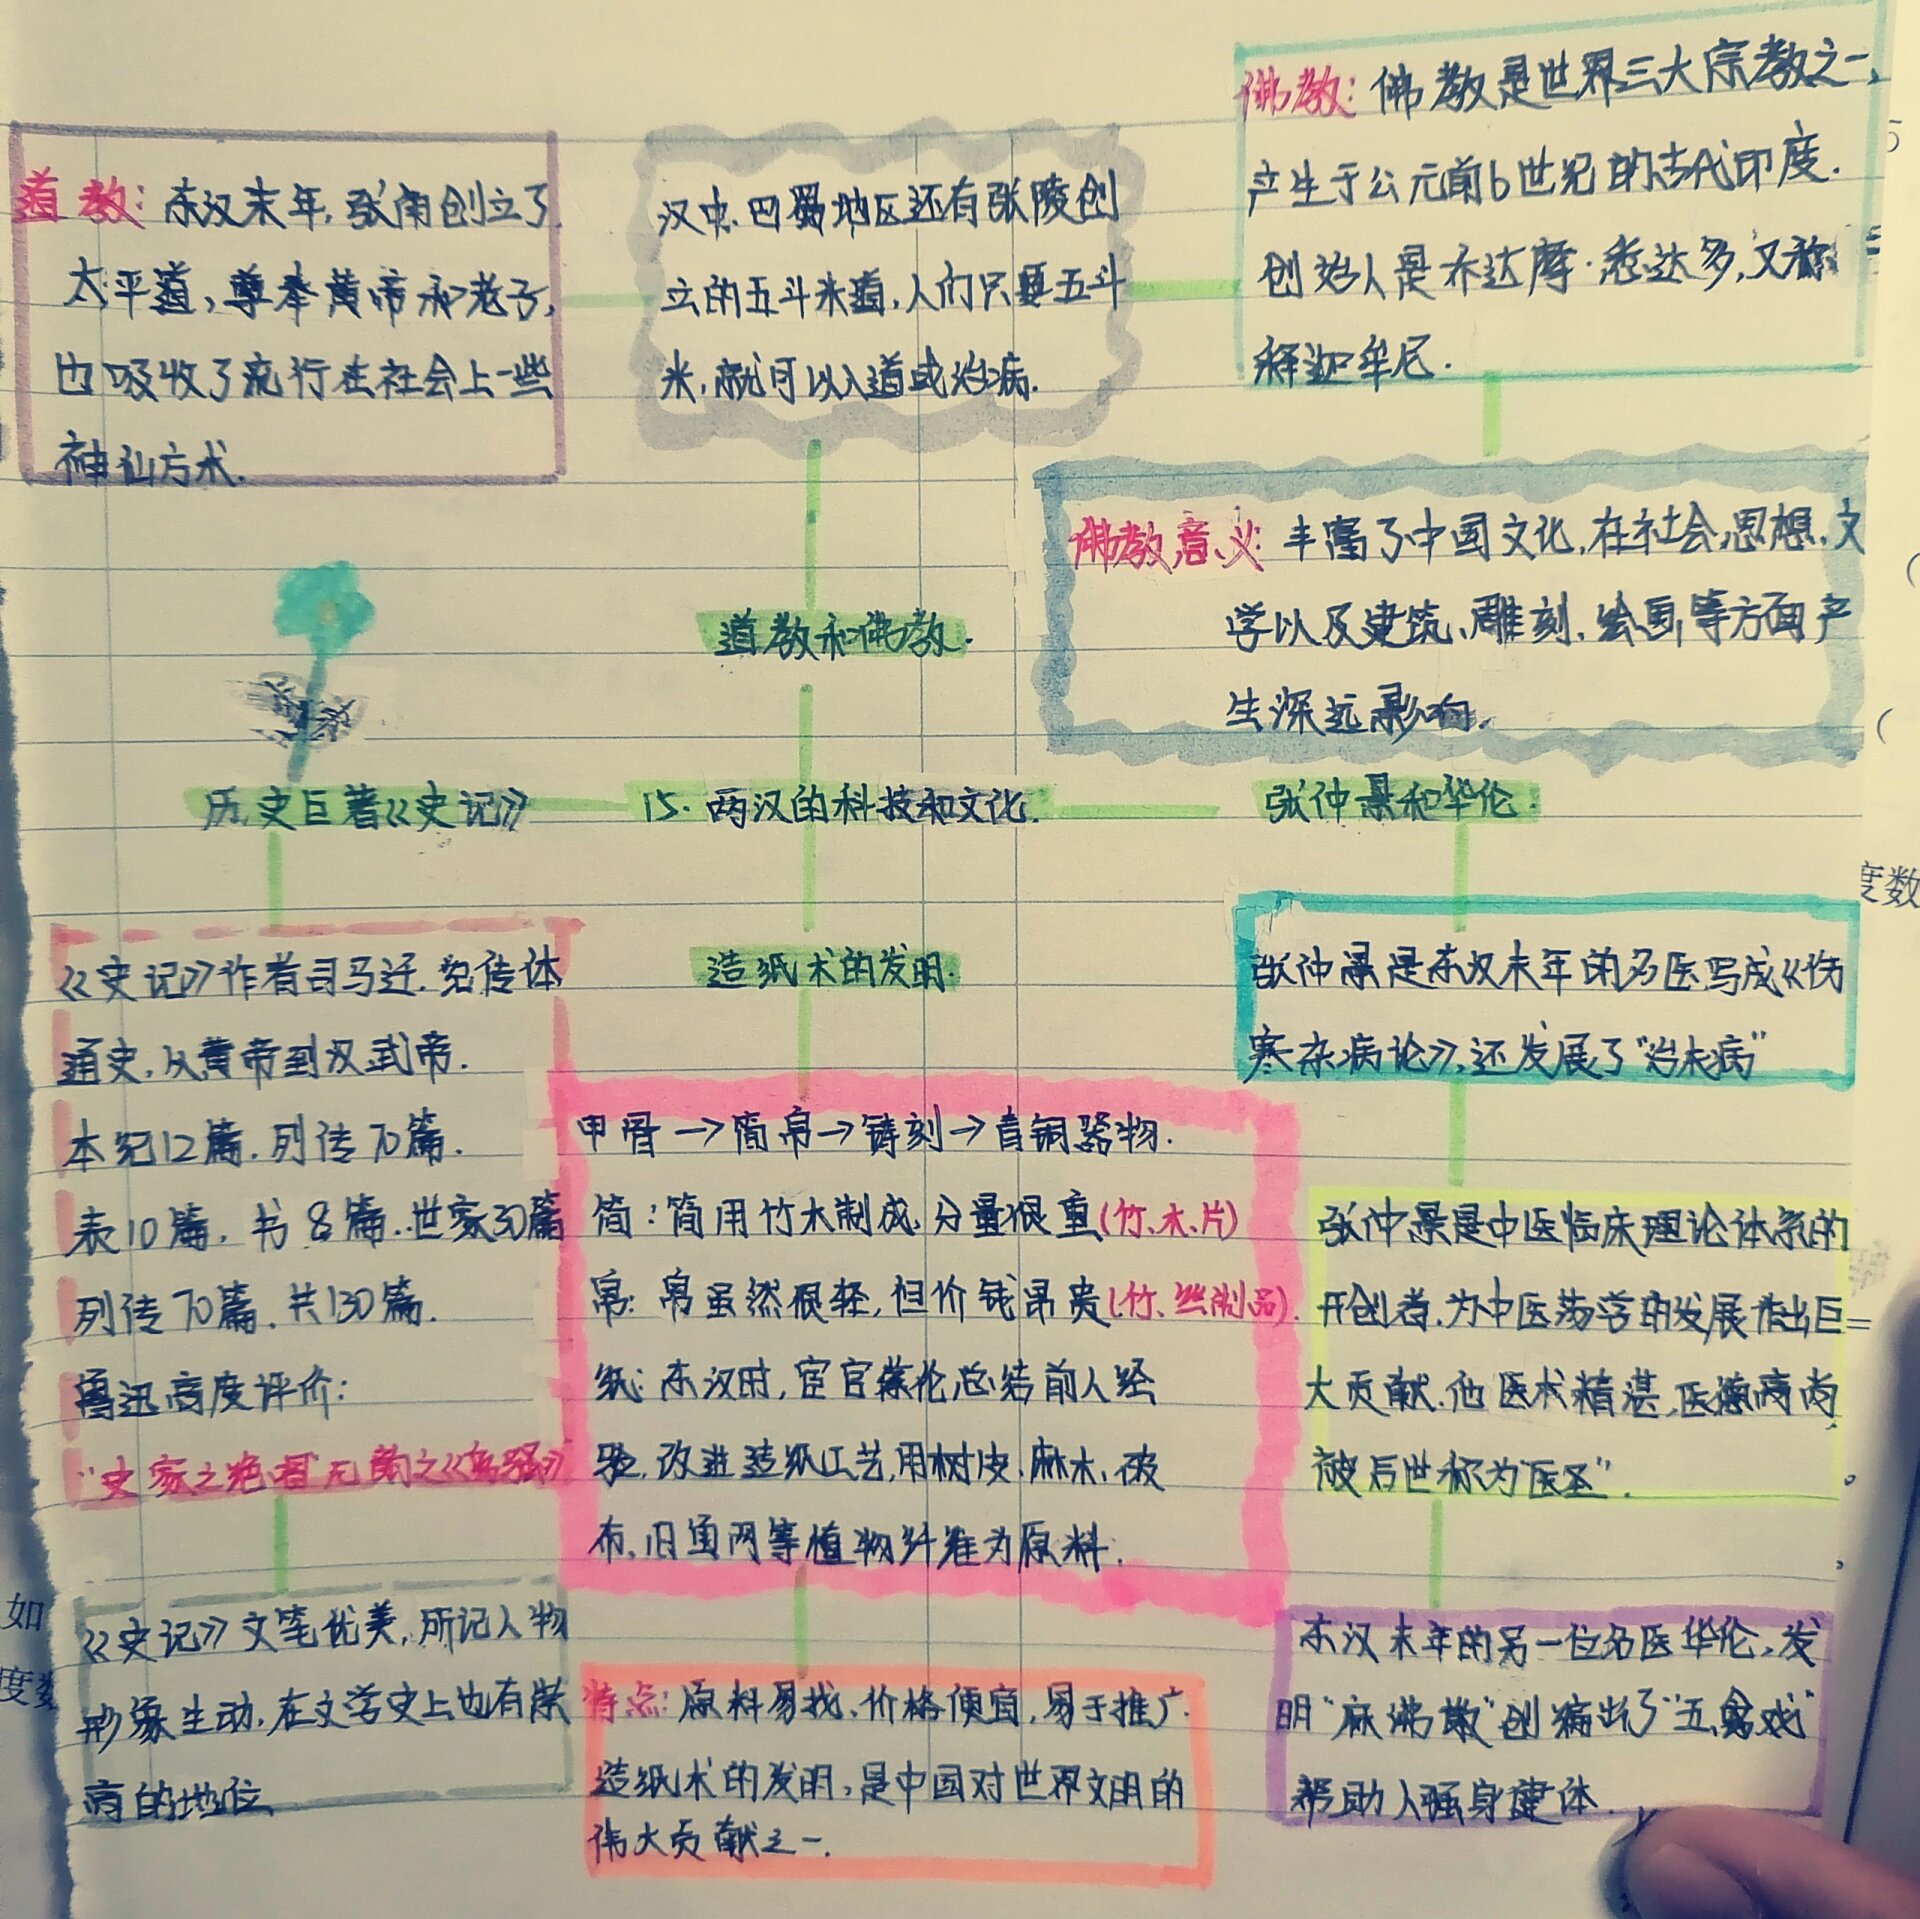 道教：东汉末年，张角创立了
太平道，尊奉黄帝和老子，
也吸收了流行在社会上一些
神仙方术.
汉中.巴蜀地区还有张陵创
立的五斗米道，人们只要五斗
米，就可以入道或治病.
佛教：佛教是世界三大宗教之一，
产生于公元前6世纪的古代印度.
创始人是乔达摩·悉达多，又称
释迦牟尼.
佛教意义：丰富了中国文化，在社会，思想，文
学以及建筑、雕刻，绘画，等方面产
生深远影响.
道教和佛教.
历史巨著《史记》
15. 两汉的科技和文化.
张仲景和华佗.
《史记》作者司马迁.纪传体
通史，从黄帝到汉武帝.
本纪12篇.列传70篇.
表10篇.书8篇.世家30篇
列传70篇.共130篇.
鲁迅高度评价：
"史家之绝唱无韵之《离骚》
《史记》文笔优美，所记人物
形象生动，在文学史上也有崇
高的地位
造纸术的发明.
甲骨→简帛→铸刻→青铜器物.
简：简用竹木制成，分量很重(竹、木、片)
帛：帛虽然很轻，但价钱昂贵(竹、丝制品).
纸：东汉时，宦官蔡伦总结前人经
验，改进造纸工艺，用树皮.麻木、破
布，旧渔网等植物纤维为原料.
特点：原料易找、价格便宜，易于推广.
造纸术的发明，是中国对世界文明的
伟大贡献之一.
张仲景是东汉末年的名医写成《伤
寒杂病论》，还发展了"治未病"
张仲景是中医临床理论体系的
开创者.为中医药学的发展作出巨
大贡献.他医术精湛，医德高尚
被后世称为"医圣".
东汉末年的另一位名医华佗，发
明"麻沸散"创编出了"五禽戏"
帮助人强身健体.
度数
如
度数